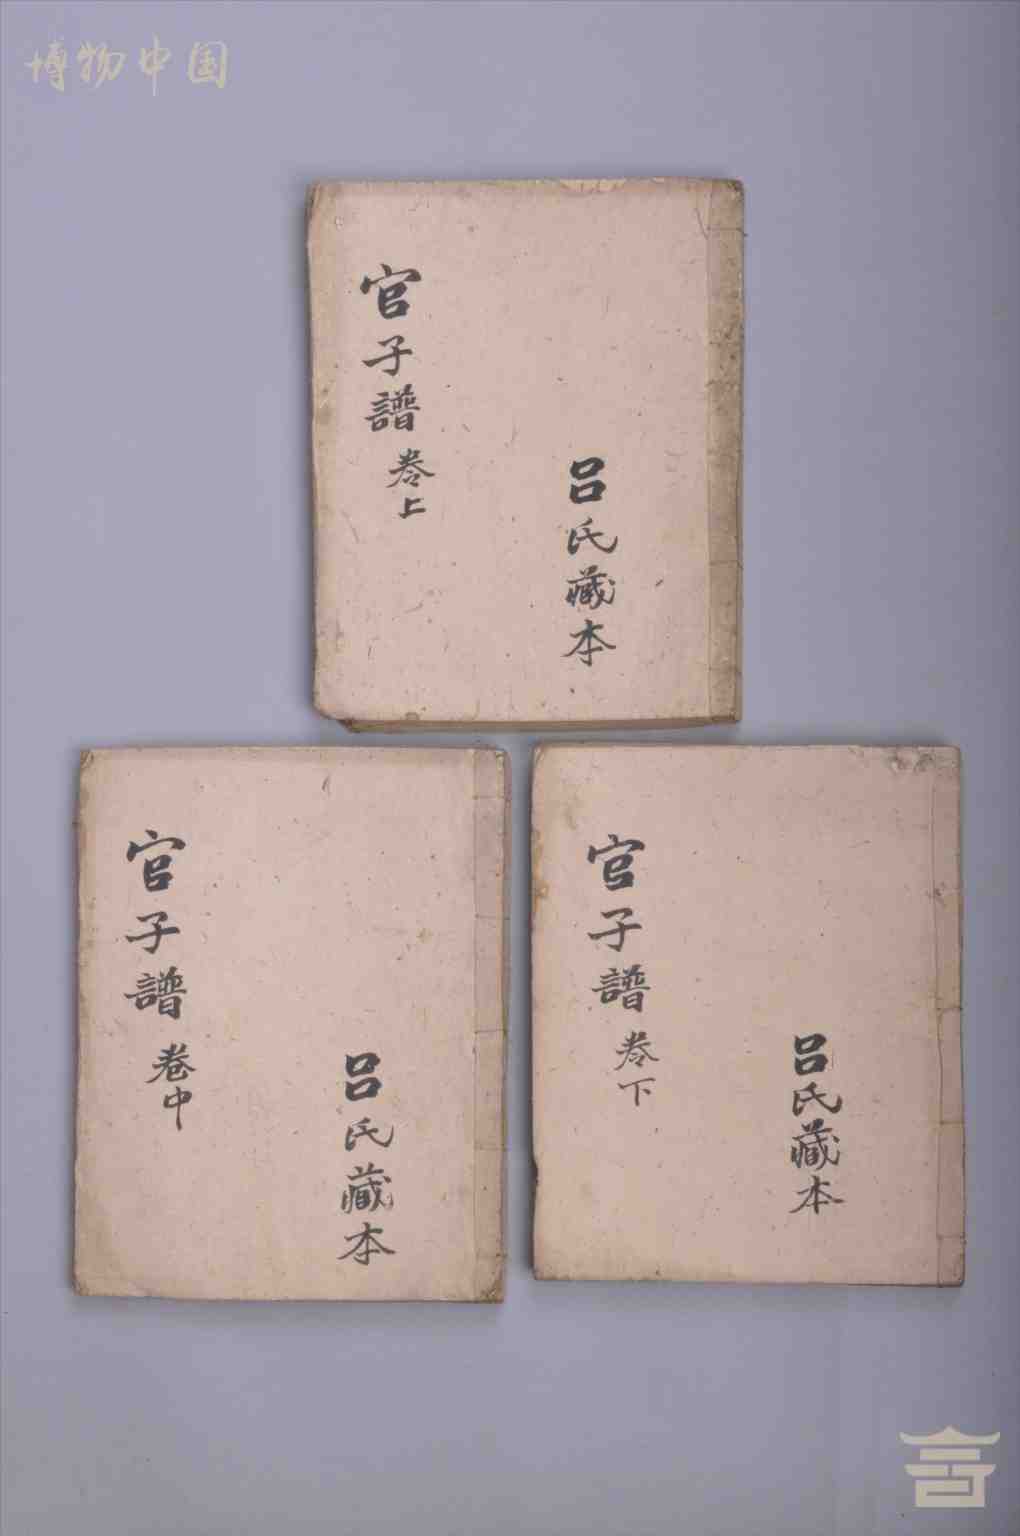 博物中国
官子譜 卷上
吕氏藏本
官子譜 卷中
吕氏藏本
官子譜 卷下
吕氏藏本